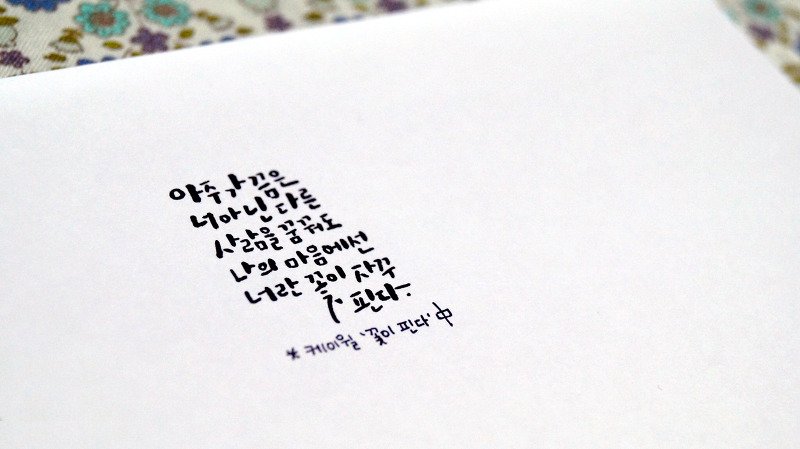 아주 가끔은
너 아닌 다른
사람을 꿈꿔도
나의 마음에선
너란 꽃이 자꾸
핀다.
* 케이윌 '꽃이 핀다' 中